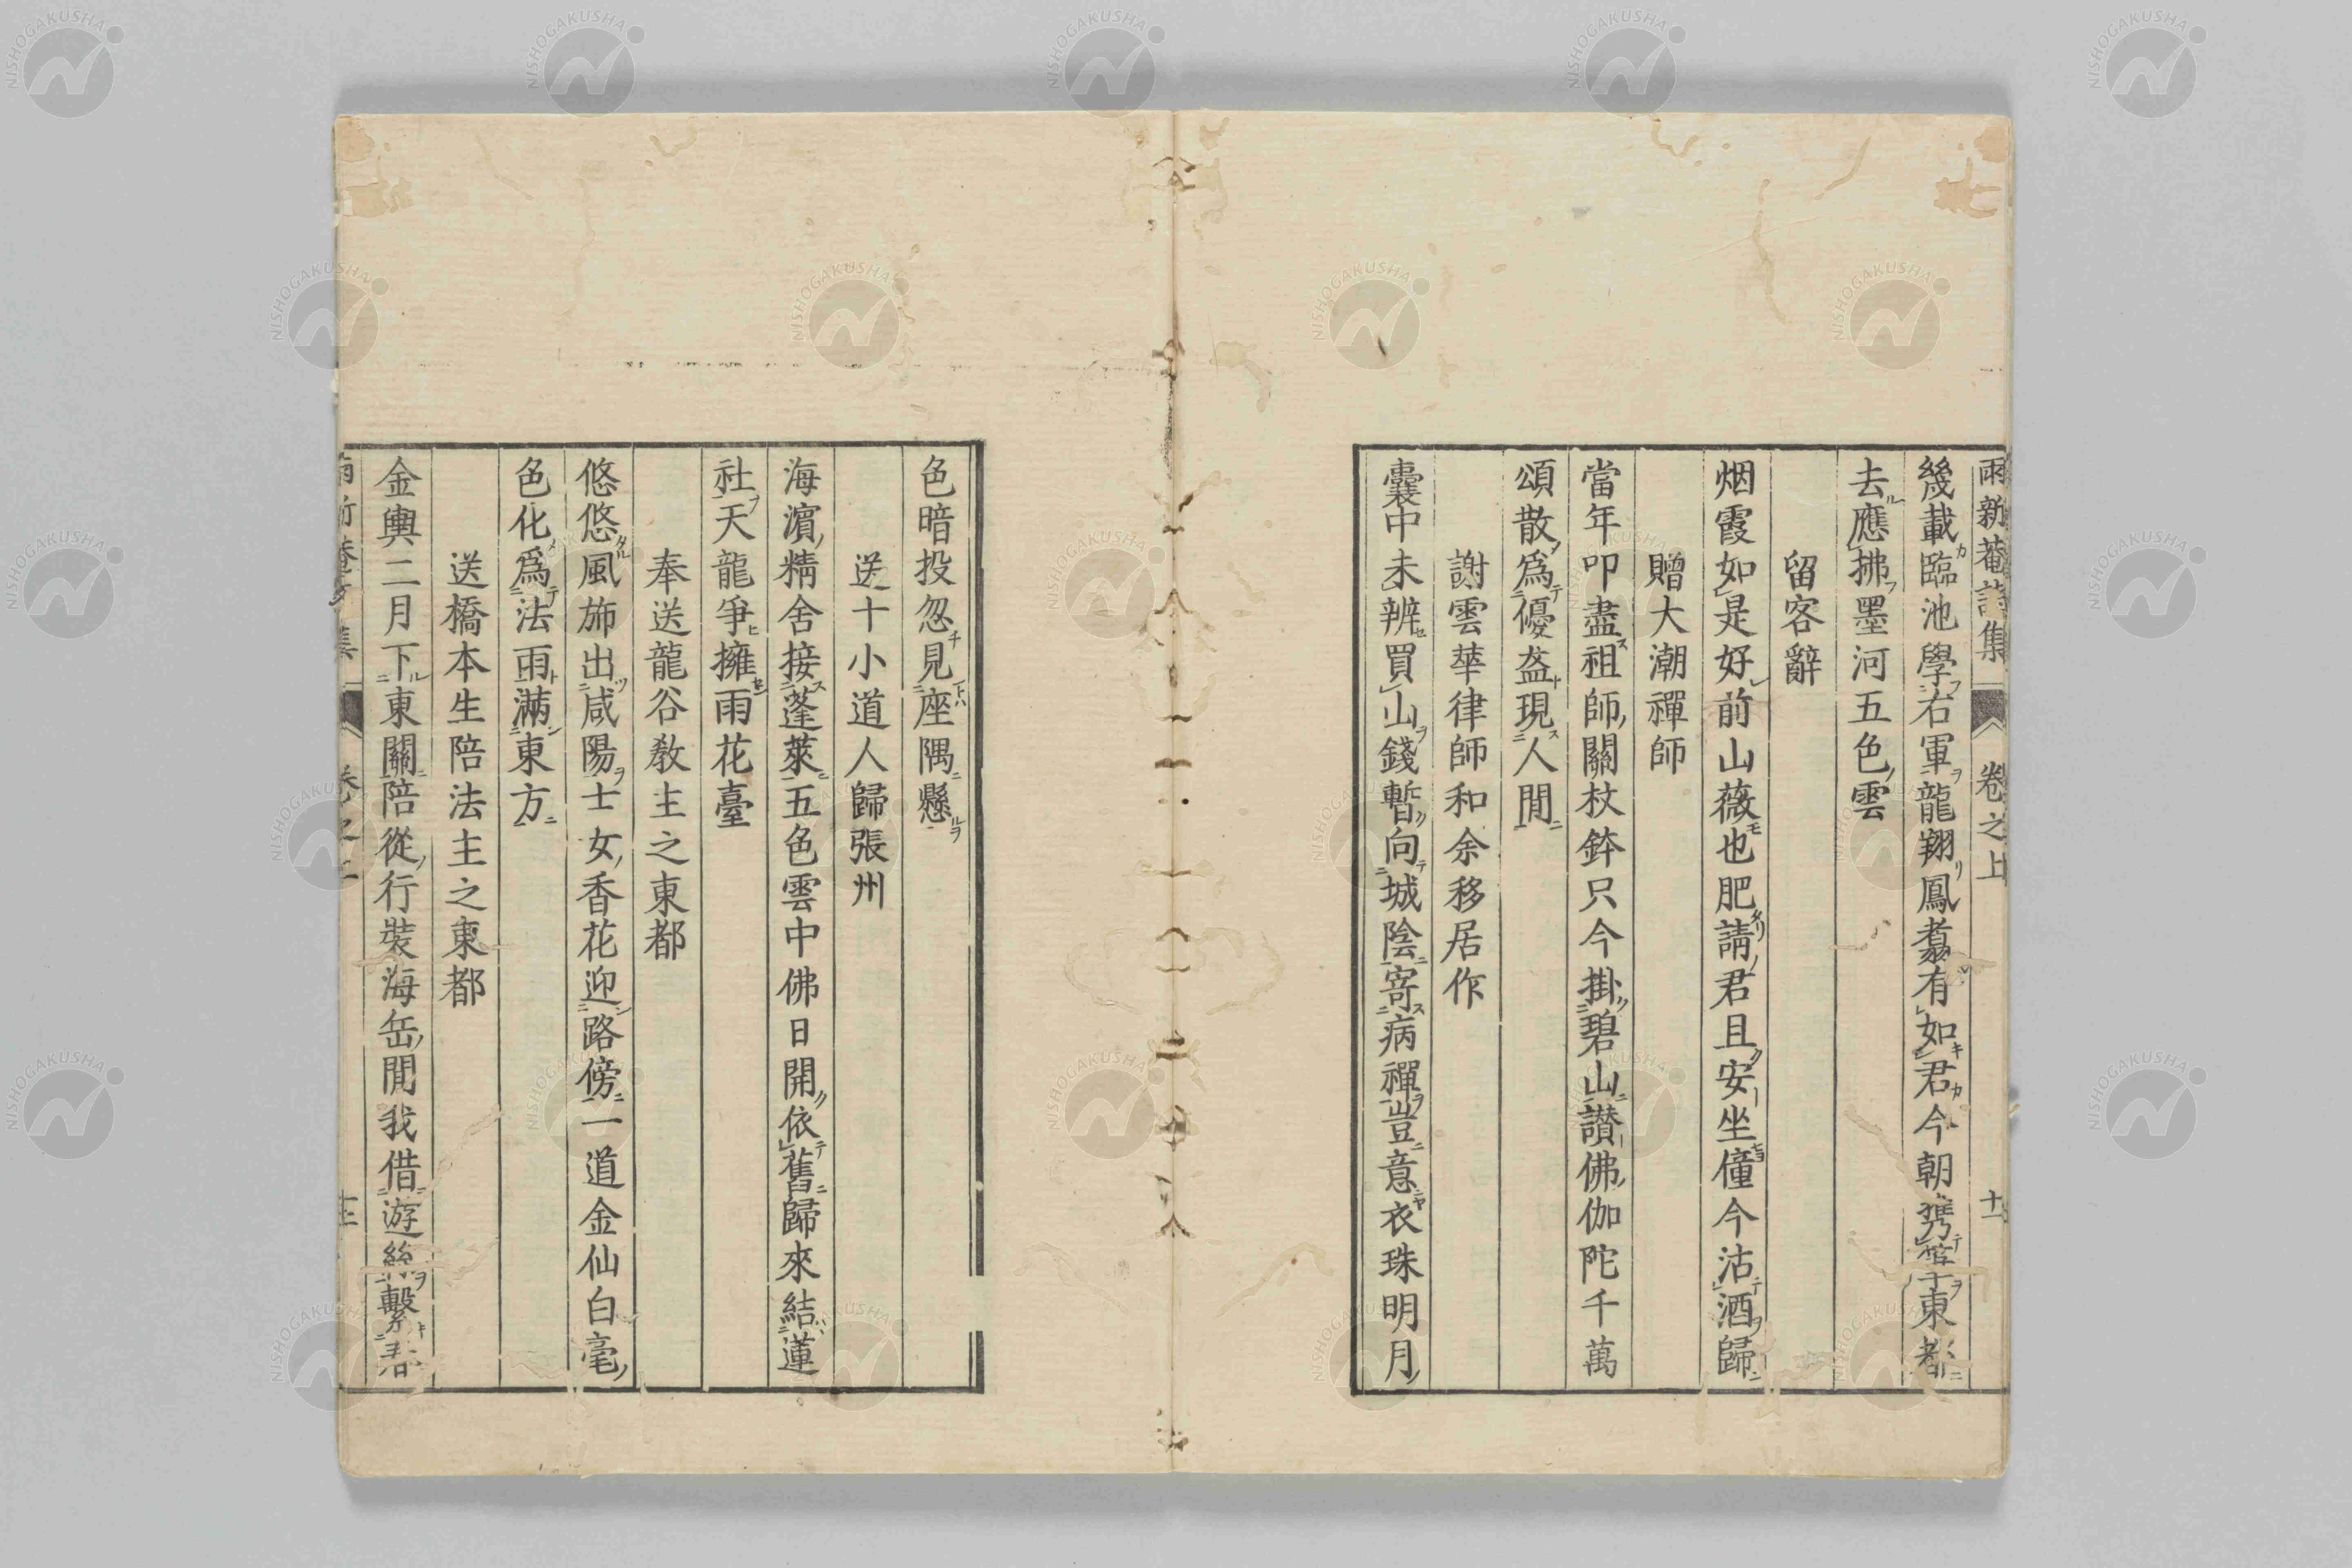 雨新菴詩集 卷之上 十一
幾載臨池學右軍龍翔鳳翥有如君今朝携筆東都
去應拂墨河五色雲
留客辭
烟霞如是好前山薇也肥請君且安坐僮今沽酒歸
贈大潮禪師
當年叩盡祖師關杖鉢只今掛碧山讃佛伽陀千萬
頌散爲優盋現人間
謝雲華律師和余移居作
囊中未辨買山錢暫向城陰寄病禪豈意衣珠明月
色暗投忽見座隅懸
送十小道人歸張州
海濵精舍接蓬萊五色雲中佛日開依舊歸來結蓮
社天龍爭擁雨花臺
奉送龍谷敎主之東都
悠悠風斾出咸陽士女香花迎路傍一道金仙白毫
色化爲法雨滿東方
送橋本生陪法主之東都
金輿二月下東關陪從行裝海岳間我借游絲繫春